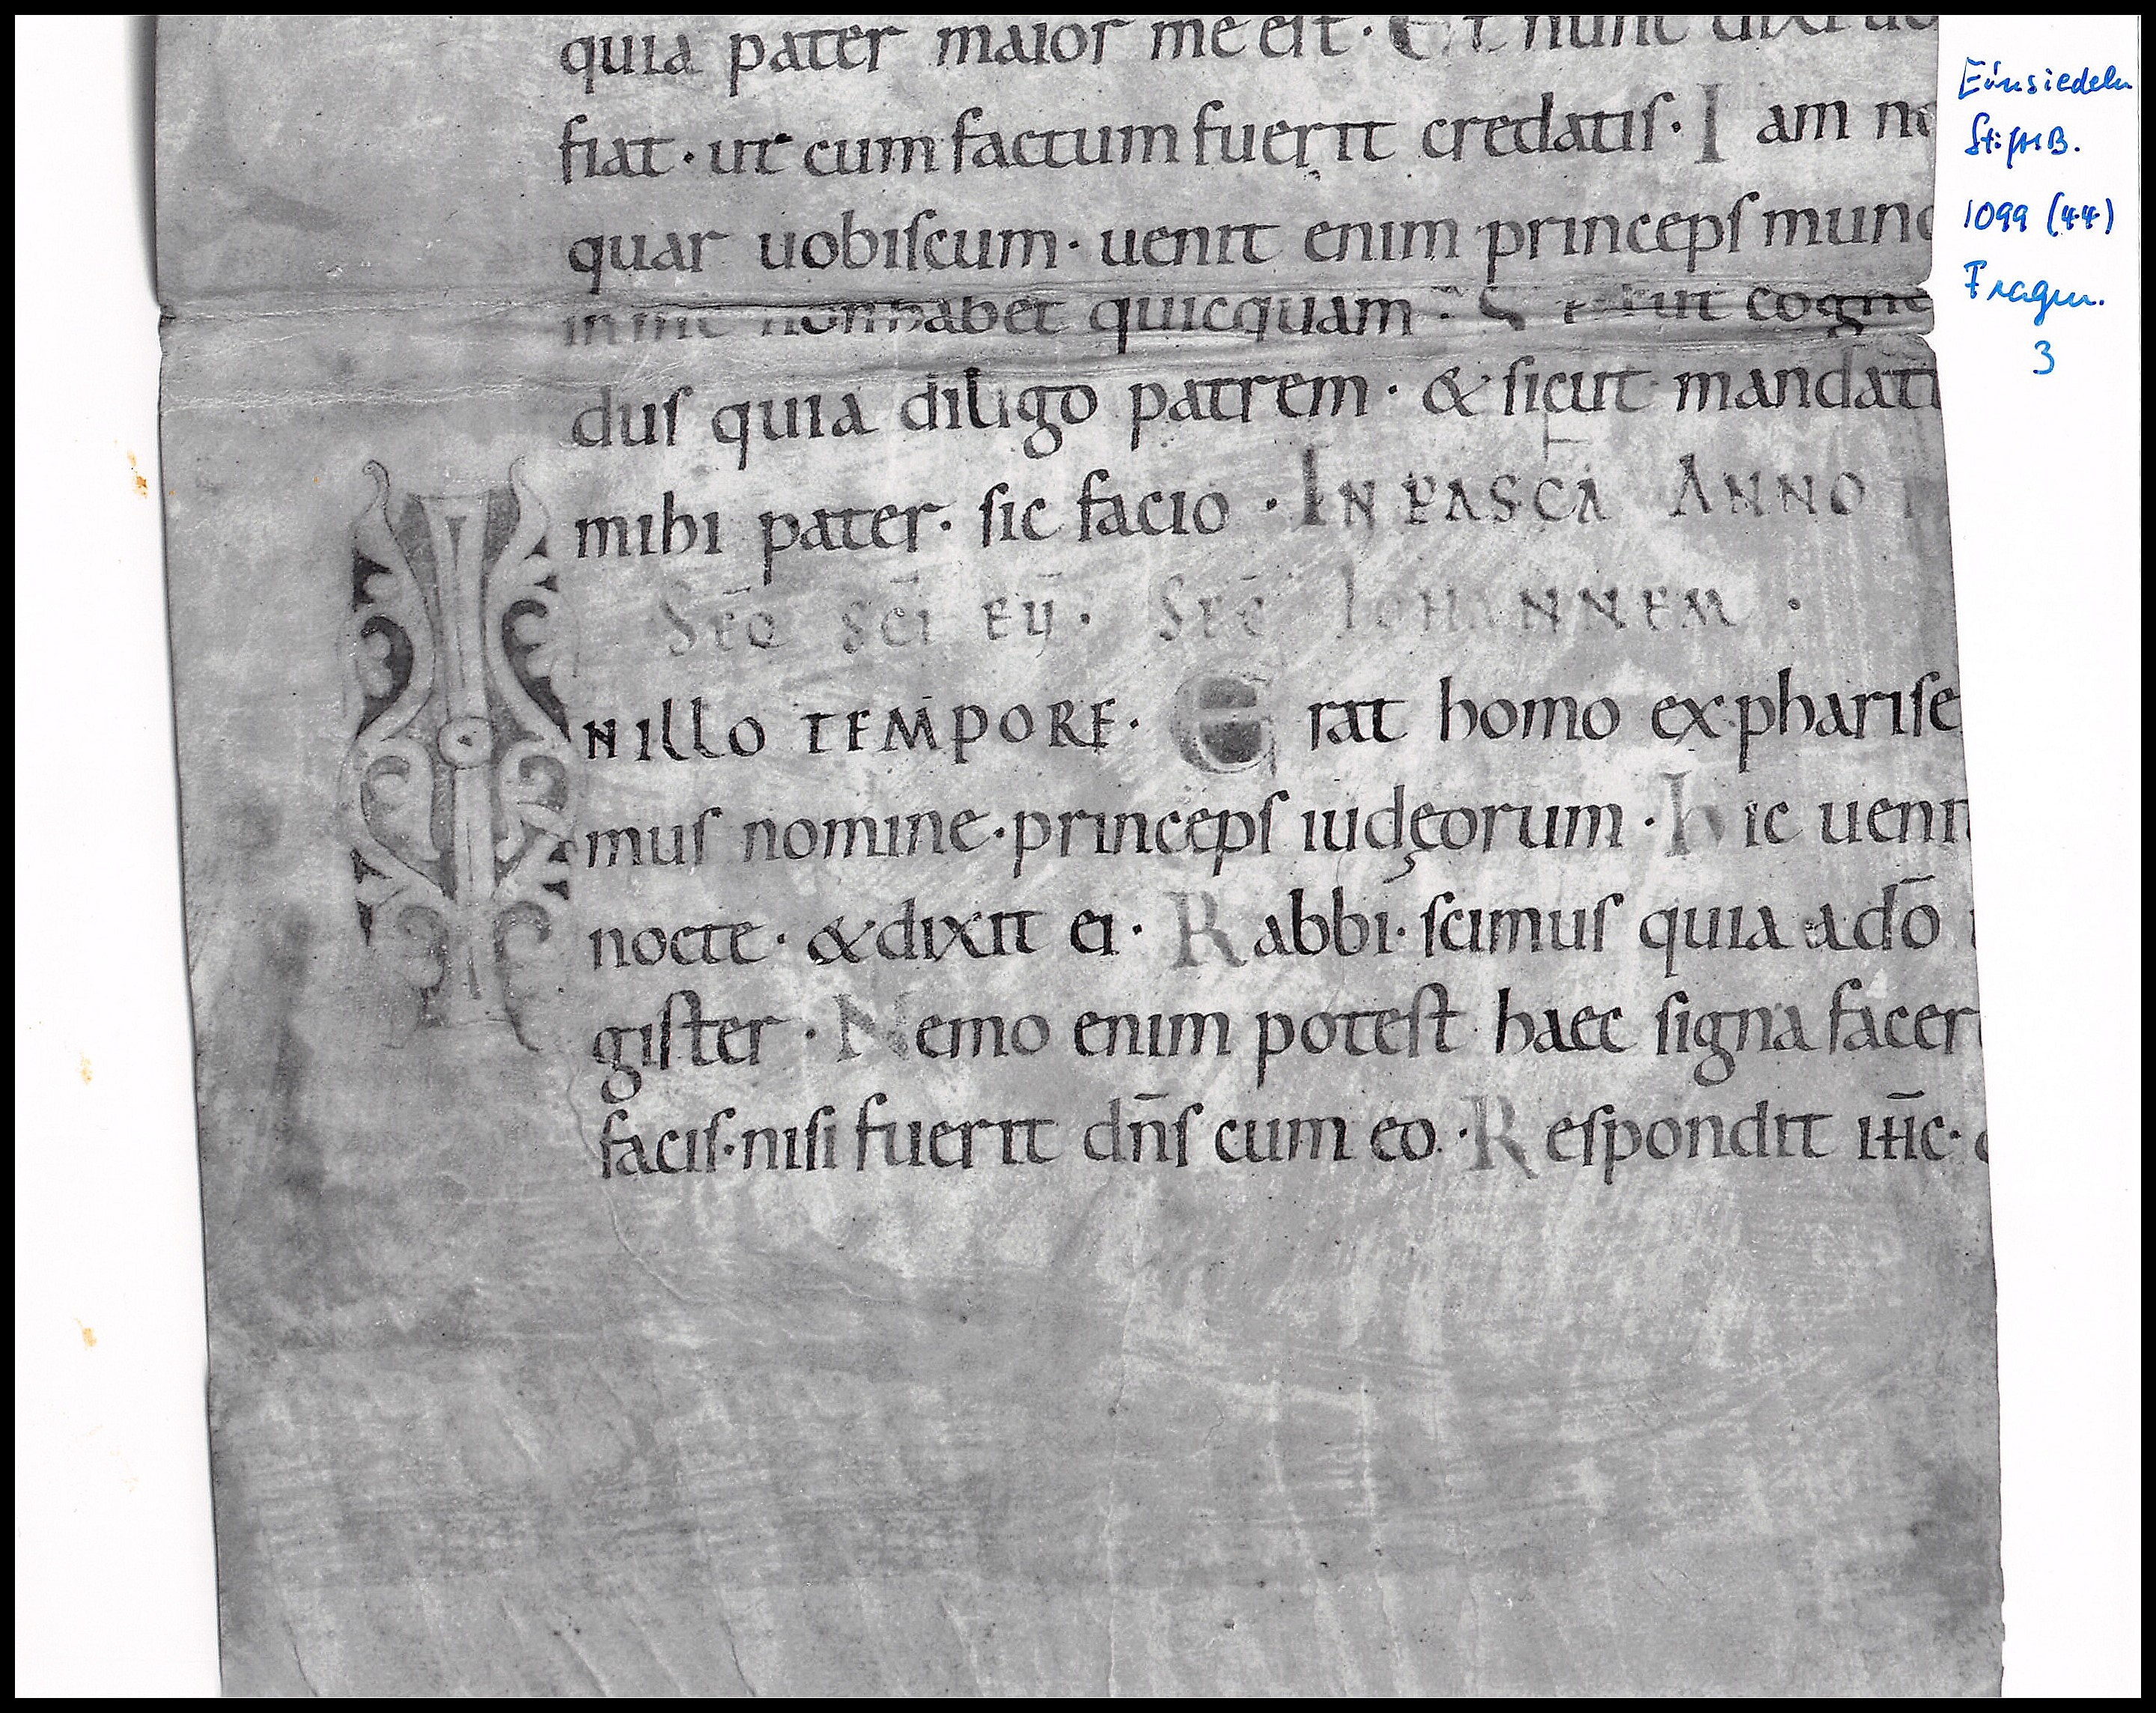 quia pater maior me est · Et nunc dixi uo
fiat · ut cum factum fuerit credatis · Iam no
quar uobiscum · uenit enim princeps mund
in me non habet quicquam · Sed ut cogno
dus quia diligo patrem · & sicut mandatū
mihi pater · sic facio · IN PASCĀ ANNO
SEQ̄ SC̄I EŪ · SEC̄ IOHANNEM ·
INILLO TEMPORE · Erat homo ex pharise
mus nomine · princeps iudęorum · hic uenit
nocte · & dixit ei · Rabbi · scimus quia a dō
gister · Nemo enim potest haec signa facer
facis · nisi fuerit dn̄s cum eo · Respondit ih̄c ·
Einsiedeln
StiftsB.
1099 (44)
Fragm.
3